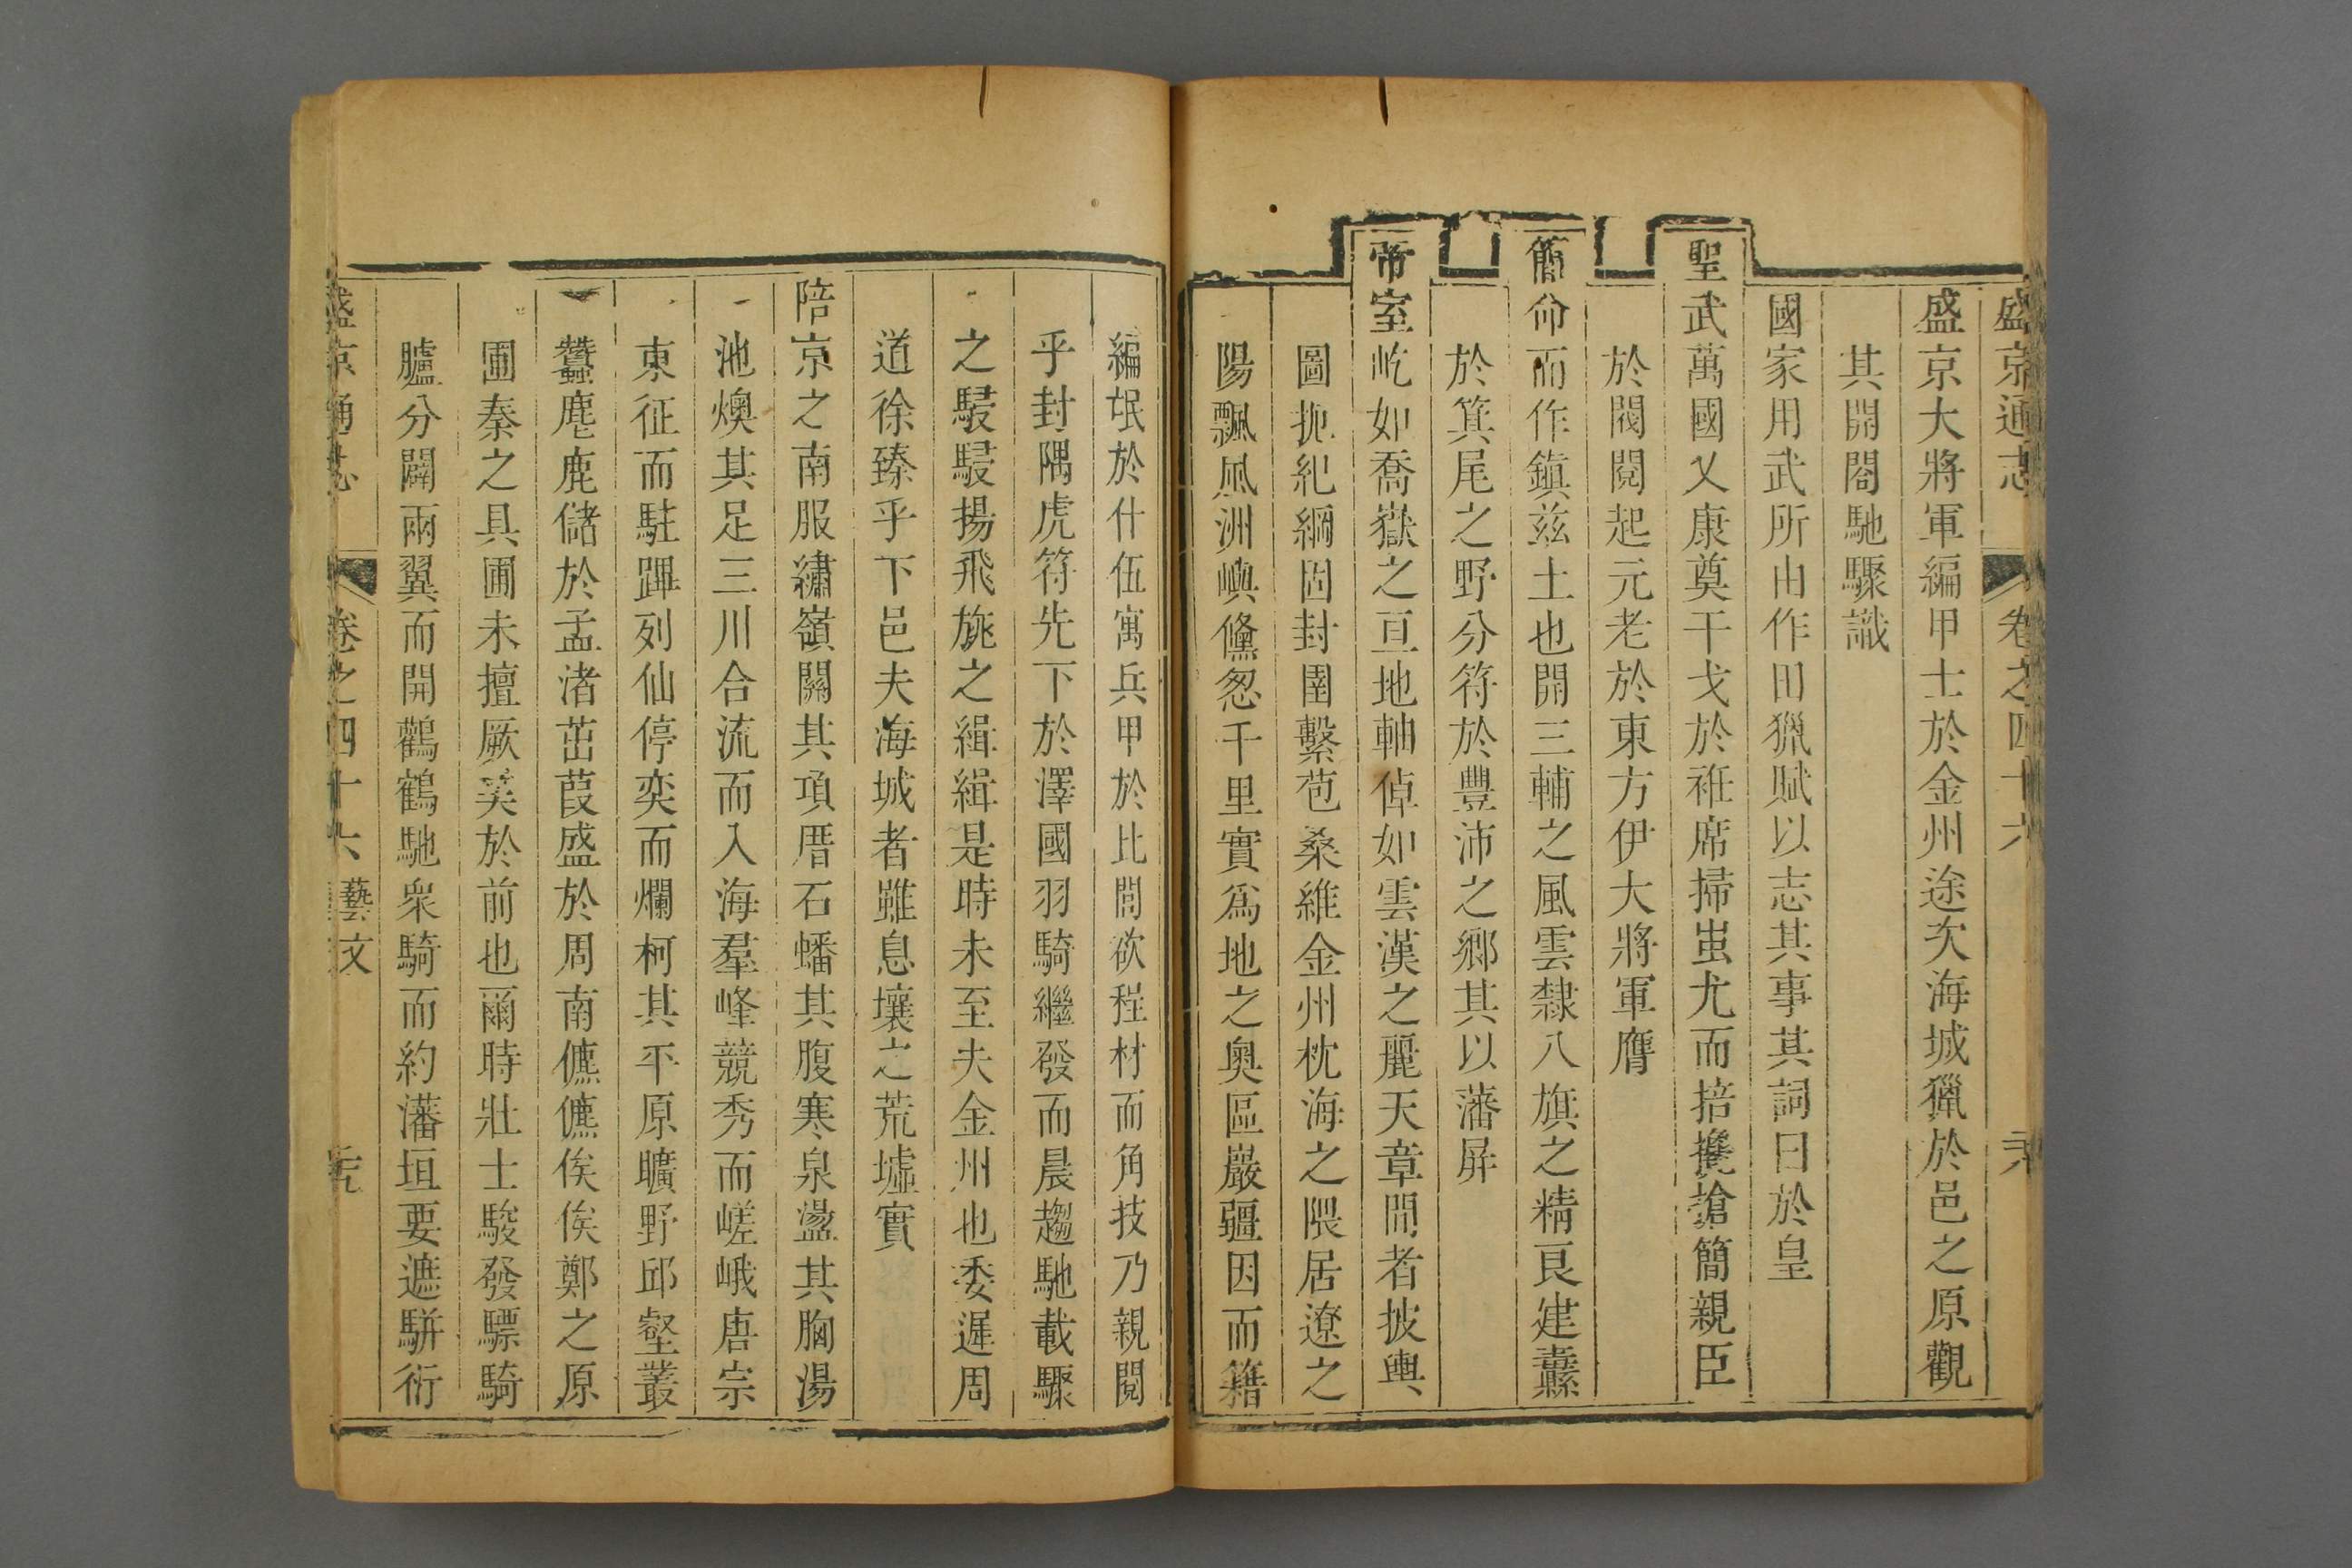 盛京通志 卷之四十六
盛京大將軍編甲士於金州途次海城獵於邑之原觀
其開閤馳驟識
國家用武所由作田獵賦以志其事其詞曰於皇
聖武萬國乂康奠干戈於袵席掃蚩尤而掊攙搶簡親臣
於閥閱起元老於東方伊大將軍膺
簡命而作鎮兹土也開三輔之風雲隸八旗之精良建櫜
於箕尾之野分符於豐沛之鄉其以藩屏
帝室屹如喬嶽之亘地軸倬如雲漢之麗天章間者披輿
圖扼紀綱固封圉繫苞桑維金州枕海之隈居遼之
陽飄風洲嶼儵忽千里實爲地之奧區巖疆因而籍
編氓於什伍寓兵甲於比閭欲程材而角技乃親閱
乎封隅虎符先下於澤國羽騎繼發而晨趨馳載驟
之駸駸揚飛旐之緝緝是時未至夫金州也委遲周
道徐臻乎下邑夫海城者雖息壤之荒墟實
陪京之南服繡嶺關其項厝石蟠其腹寒泉盪其胸湯
池燠其足三川合流而入海羣峰競秀而嵯峨唐宗
東征而駐蹕列仙停奕而爛柯其平原曠野邱壑叢
薈麀鹿儲於孟渚茁葭盛於周南儦儦俟俟鄭之原
圃秦之具圃未擅厥美於前也爾時壯士駿發驃騎
臚分闢兩翼而開鸛鶴馳衆騎而約藩垣要遮駢衍
盛京通志 卷之四十六 藝文